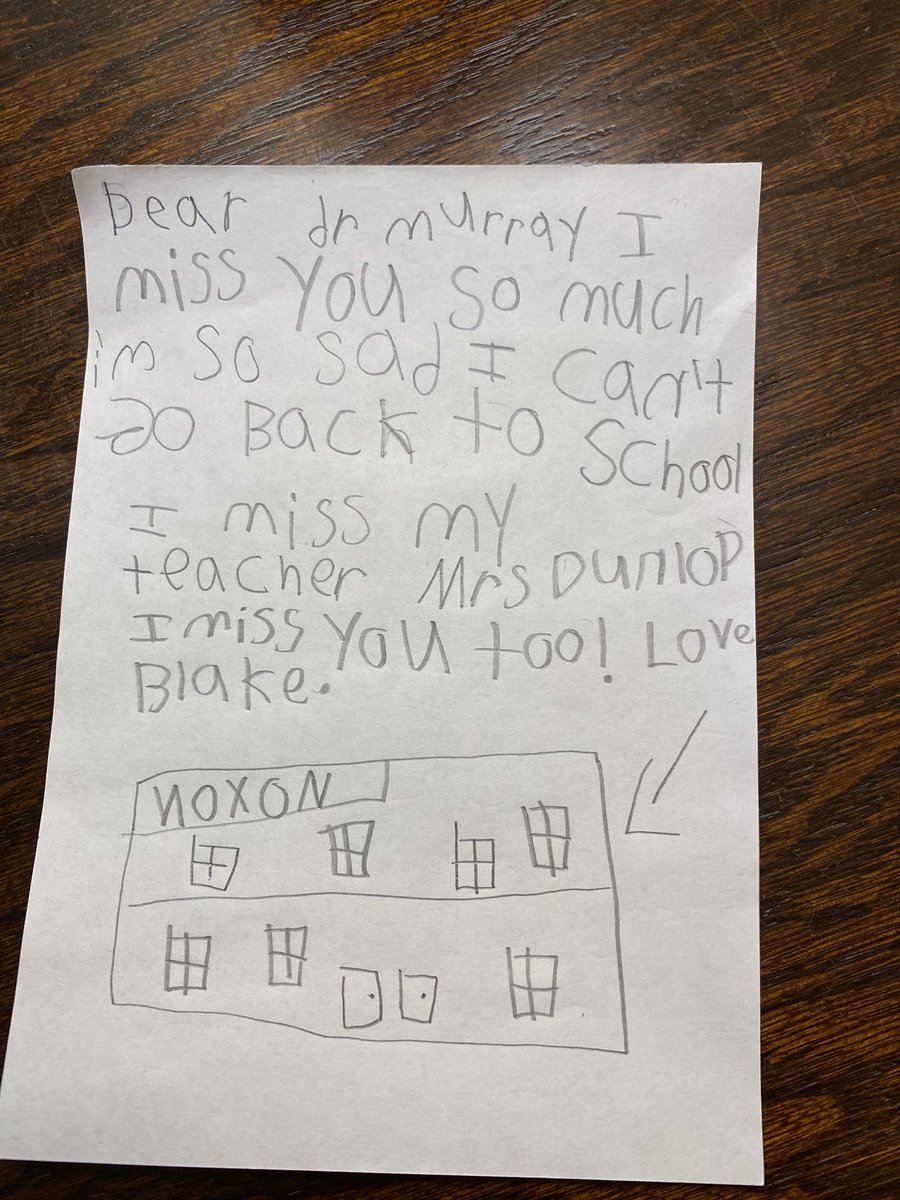 Dear dr murray I
miss you so much
i'm so sad I can't
go Back to School
I miss my
teacher Mrs Dunlop
I miss you too! Love
Blake.
NOXON